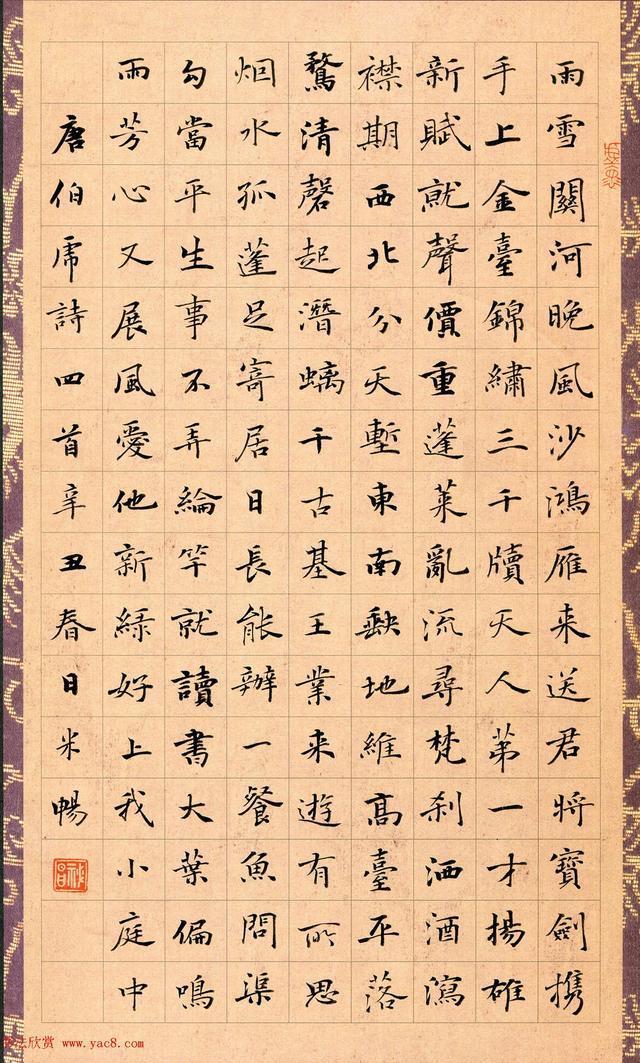 雨雪關河晚風沙鴻雁来送君將寶劍携
手上金臺錦繡三千牘天人第一才揚雄
新賦就聲價重蓬萊亂流尋梵刹洒酒瀉
襟期西北分天塹東南缺地維高臺平落
鶩清磬起潛螭千古基王業来遊有所思
烟水孤蓬足寄居日長能辦一餐魚問渠
勾當平生事不弄綸竿就讀書大葉偏鳴
雨芳心又展風愛他新緑好上我小庭中
唐伯虎詩四首辛丑春日米暢
法欣赏 www.yac8.com